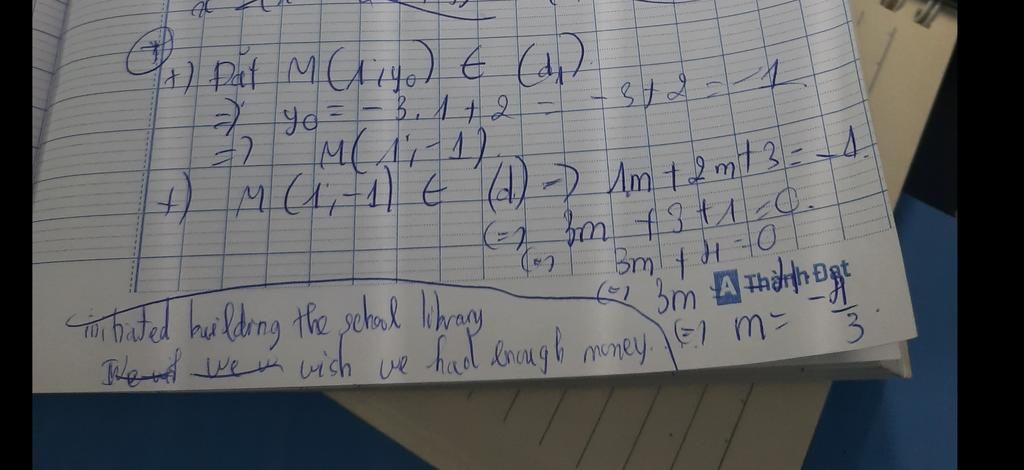 +) Đặt M(1; y₀) ∈ (d₁)
=> y₀ = -3.1 + 2 = -3+2 = -1
=> M(1; -1).
+) M(1; -1) ∈ (d) => 1m + 2m + 3 = -1.
(=) 3m + 3 + 1 = 0.
(=) 3m + 4 = 0
(=) 3m
Thành Đạt
(=) m = -4/3.
initiated building the school library
we wish we had enough money.